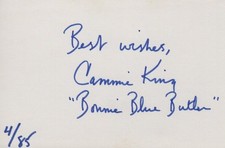 Best wishes,
Cammie King
"Bonnie Blue Butler"
4/85